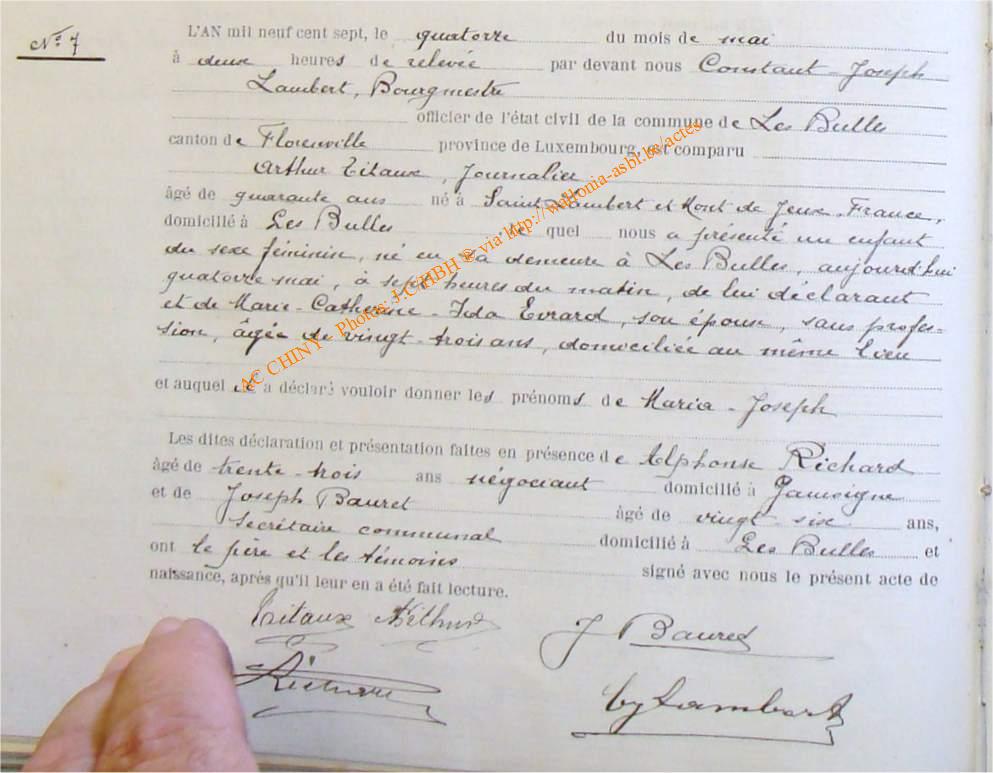 No 7
L'AN mil neuf cent sept, le quatorze du mois de mai
à deux heures de relevée par devant nous Constant-Joseph
Lambert, Bourgmestre
officier de l'état civil de la commune de Les Bulles
canton de Florenville province de Luxembourg, est comparu
Arthur Titaux, Journalier
âgé de quarante ans né à Saint-Lambert et Mont de Jeux, France,
domicilié à Les Bulles le quel nous a présenté un enfant
du sexe féminin, né en sa demeure à Les Bulles, aujourd'hui
quatorze mai, à sept heures du matin, de lui déclarant
et de Marie-Catherine-Ida Evrard, son épouse, sans profes-
sion, âgée de vingt-trois ans, domiciliée au même lieu
et auquel il a déclaré vouloir donner les prénoms de Maria-Joseph
Les dites déclaration et présentation faites en présence de Alphonse Richard
âgé de trente-trois ans négociant domicilié à Jamoigne
et de Joseph Bauret âgé de vingt-six ans,
Secrétaire communal domicilié à Les Bulles et
ont le père et les témoins signé avec nous le présent acte de
naissance, après qu'il leur en a été fait lecture.
Titaux Arthur
J Bauret
Richard
Lambert
AC CHINY - Photos: J.C.HBH ® via http://wallonia-asbl.be/actes